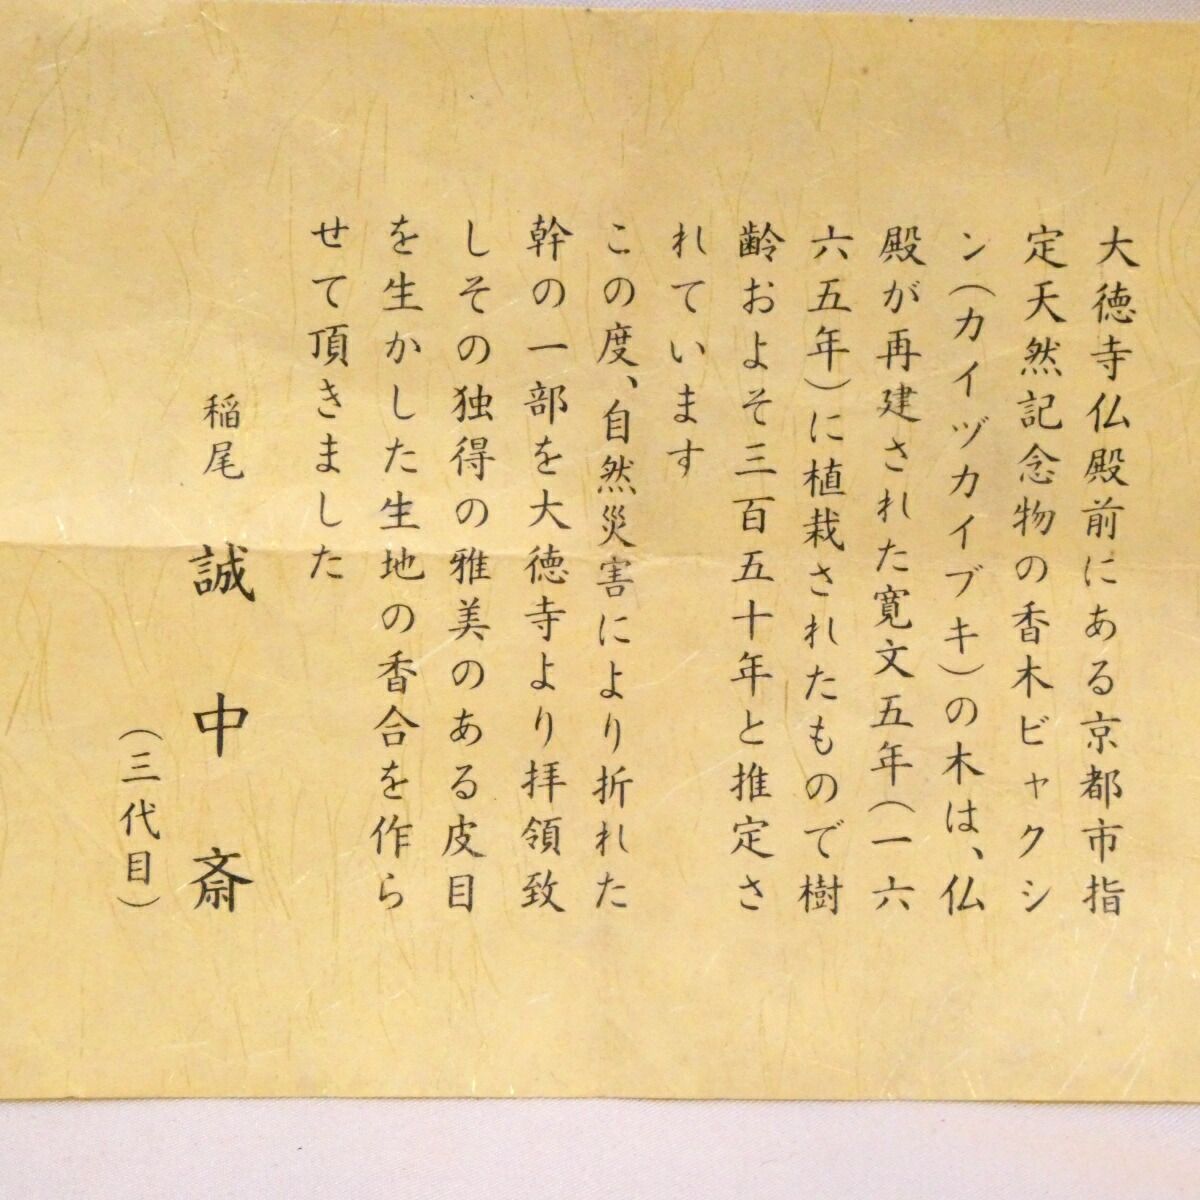 大徳寺仏殿前にある京都市指
定天然記念物の香木ビャクシ
ン(カイヅカイブキ)の木は、仏
殿が再建された寛文五年(一六
六五年)に植栽されたもので樹
齢およそ三百五十年と推定さ
れています
この度、自然災害により折れた
幹の一部を大徳寺より拝領致
しその独得の雅美のある皮目
を生かした生地の香合を作ら
せて頂きました
稲尾 誠中斎
(三代目)